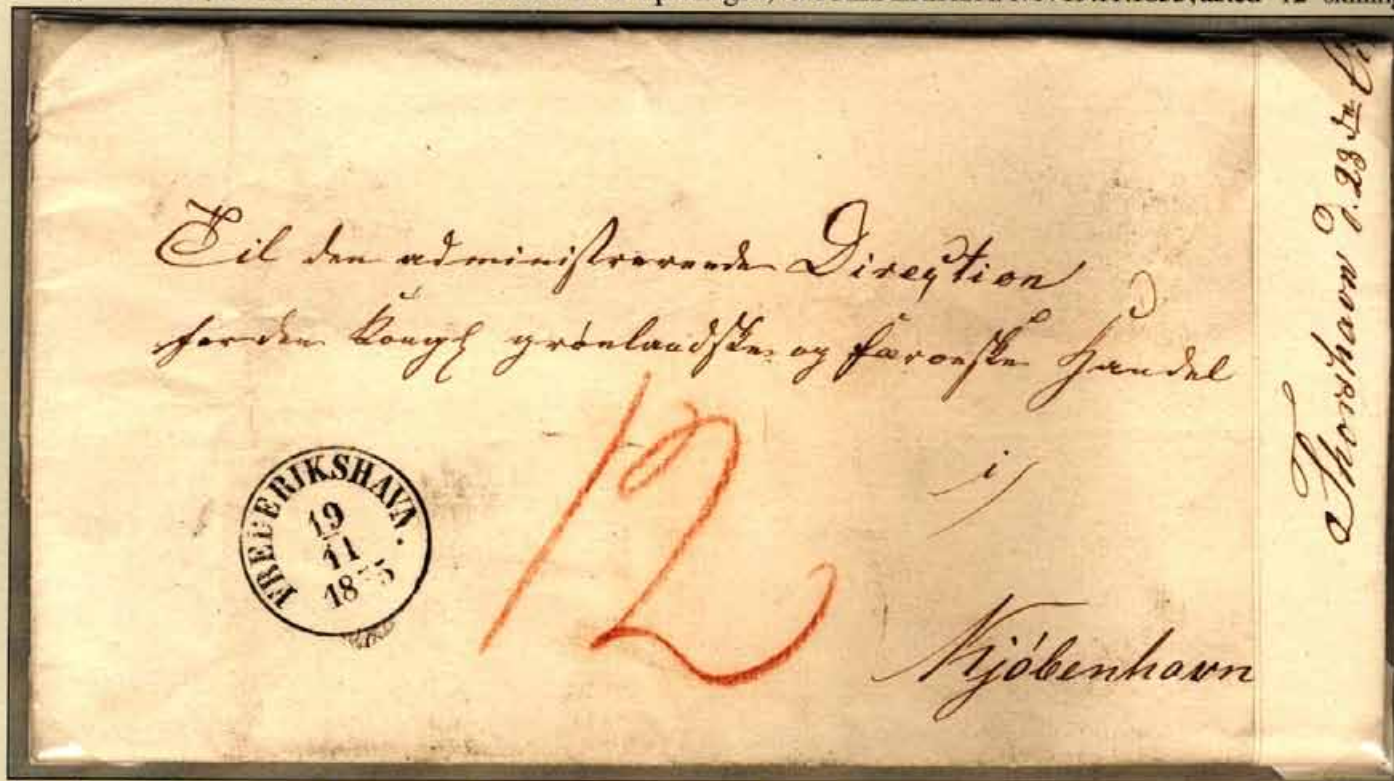 Til den administrerende Direction
for den Kongl grønlandske og færøeske Handel
i
Kjöbenhavn
12
FREDERIKSHAVN.
19
11
1855
Thorshavn d. 28de